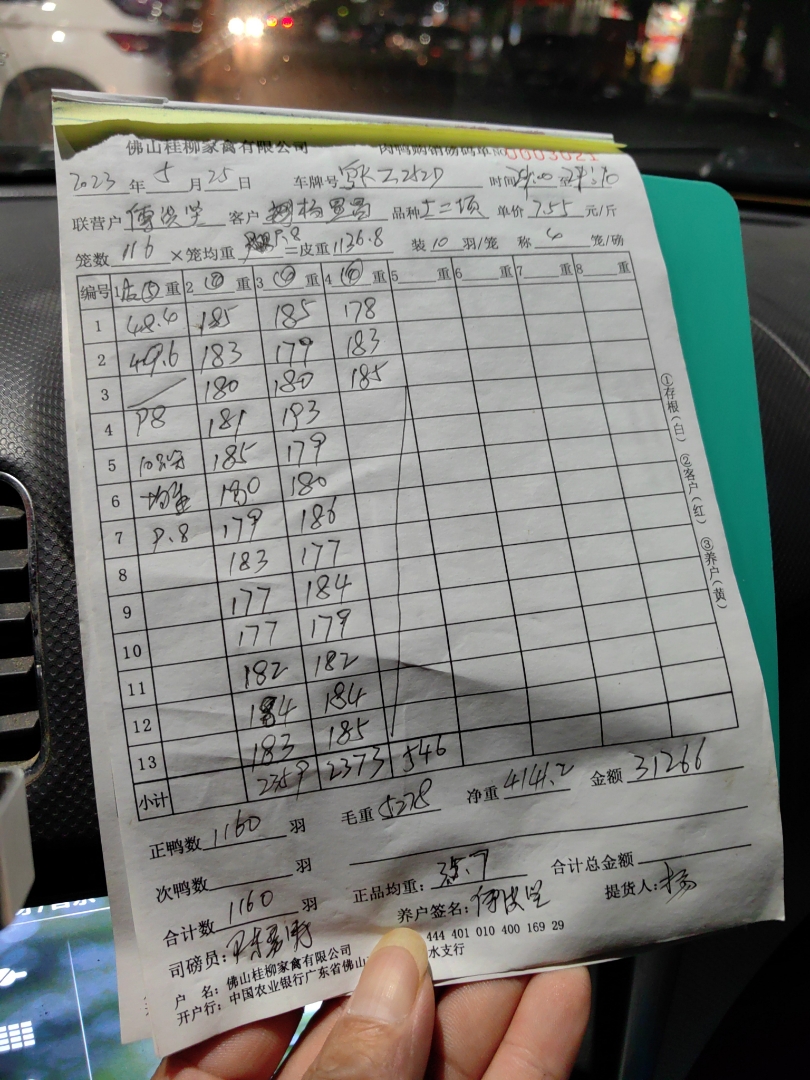 佛山桂柳家禽有限公司 肉鸭购销磅码单 0003021
2023 年 5 月 25 日 车牌号 时间
联营户 客户 品种 十二项 单价 7.55 元/斤
笼数 116 ×笼均重 9.8 =皮重 1136.8 装 10 羽/笼 称 笼/磅
编号 1 重 2 重 3 重 4 重 5 重 6 重 7 重 8 重
1 48.4 185 185 178
2 49.6 183 179 183
3 180 180 185
4 98 181 193
5 185 179
6 均重 180 180
7 9.8 179 186
8 183 177
9 177 184
10 177 179
11 182 182
12 184 184
13 183 185
小计 2359 2373 546
正鸭数 1160 羽 毛重 5278 净重 4141.2 金额 31266
次鸭数 羽
合计数 1160 羽 正品均重： 合计总金额
司磅员： 养户签名： 提货人：杨
户 名：佛山桂柳家禽有限公司 444 401 010 400 169 29
开户行：中国农业银行广东省佛山 水支行
①存根（白） ②客户（红） ③养户（黄）